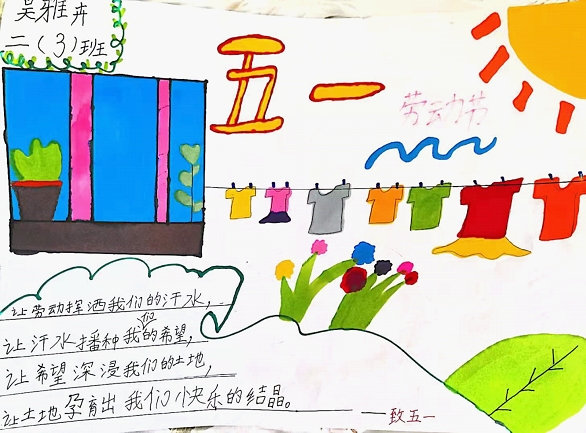 吴雅卉
二(3)班
五一
劳动节
让劳动挥洒我们的汗水,
让汗水播种我们的希望,
让希望深浸我们的土地,
让土地孕育出我们快乐的结晶。
——致五一